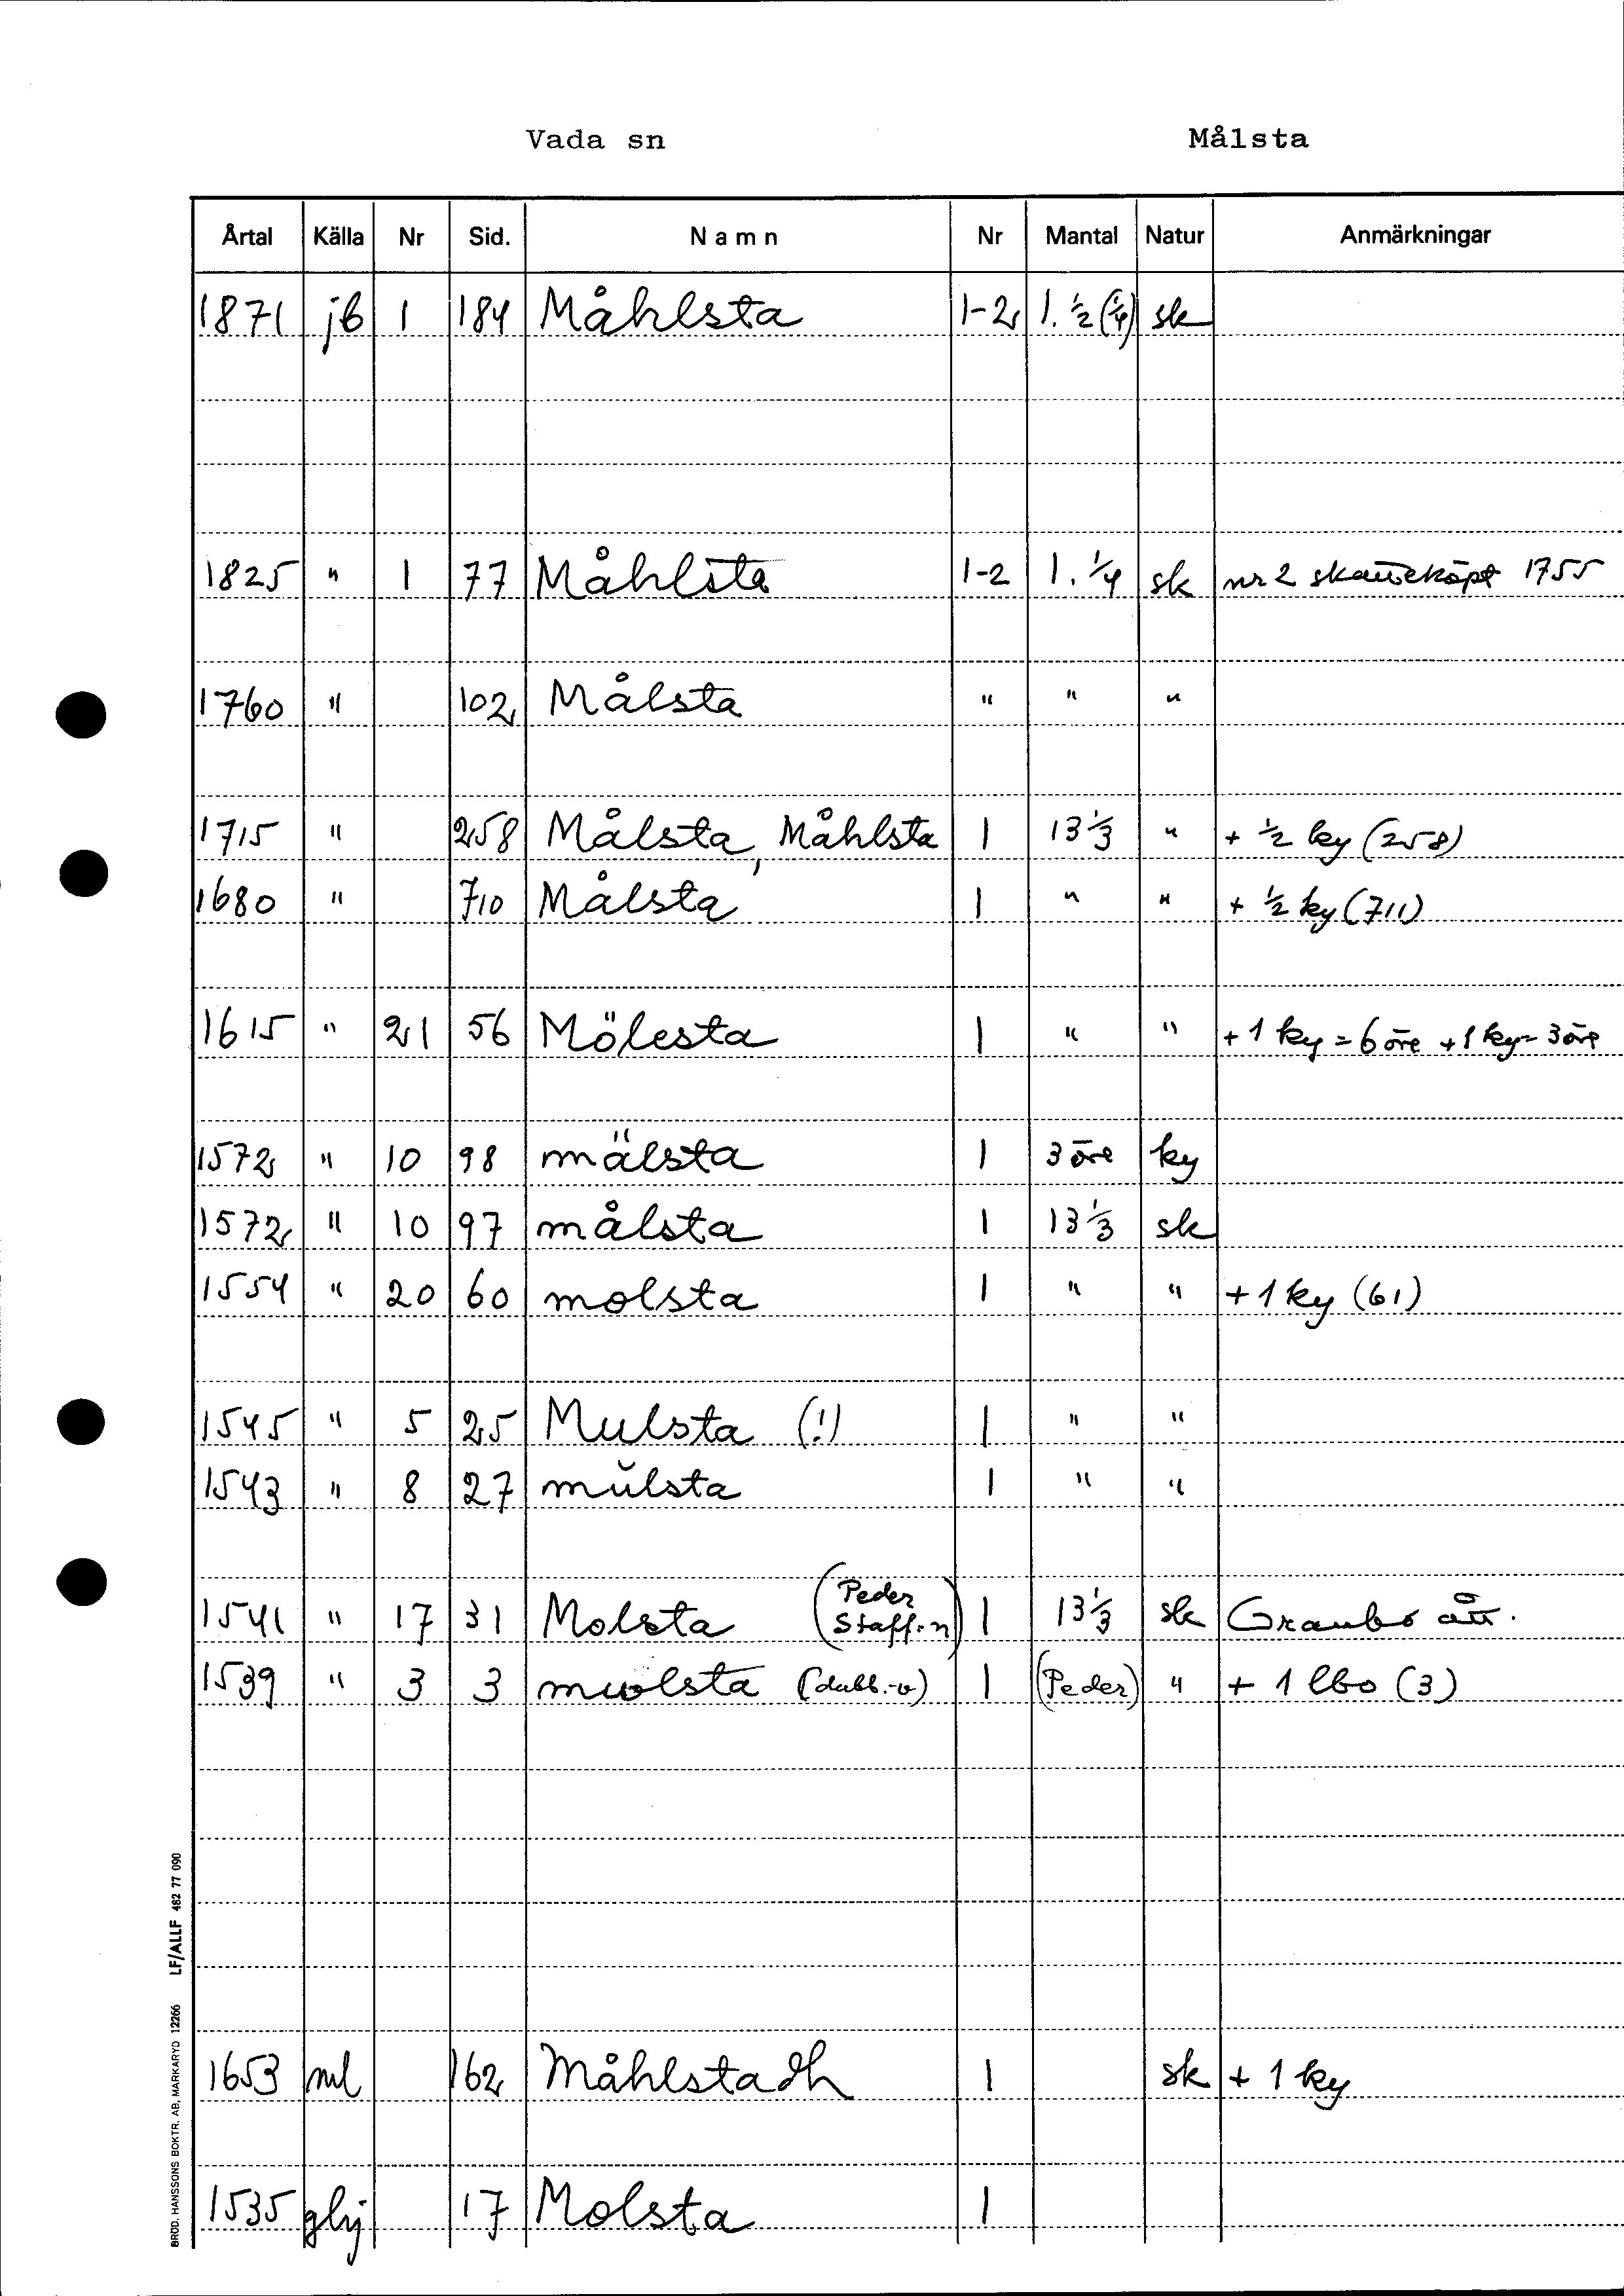 Vada sn Målsta
Årtal Källa Nr Sid. Namn Nr Mantal Natur Anmärkningar
1871 jb 1 184 Måhlsta 1-2 1. ½ (¼) sk
1825 " 1 77 Måhlsta 1-2 1. ¼ sk nr 2 skatteköpt 1755
1760 " 102 Målsta " " "
1715 " 258 Målsta, Måhlsta 1 13 ⅓ " + ½ ky (258)
1680 " 710 Målsta 1 " " + ½ ky (711)
1615 " 21 56 Mölesta 1 " " + 1 ky = 6 öre + 1 ky = 3 öre
1572 " 10 98 mälsta 1 3 öre ky
1572 " 10 97 målsta 1 13 ⅓ sk
1554 " 20 60 molsta 1 " " + 1 ky (61)
1545 " 5 25 Mulsta (!) 1 " "
1543 " 8 27 mŭlsta 1 " "
1541 " 17 31 Molsta (Peder Staff.n) 1 13 ⅓ sk Graubo ått.
1539 " 3 3 mwolsta (dubb.-v) 1 (Peder) " + 1 lbo (3)
1653 ml 162 Måhlstadh 1 sk + 1 ky
1535 ghj 17 Molsta 1
BRÖD. HANSSONS BOKTR. AB, MARKARYD 12266 LF/ALLF 482 77 090